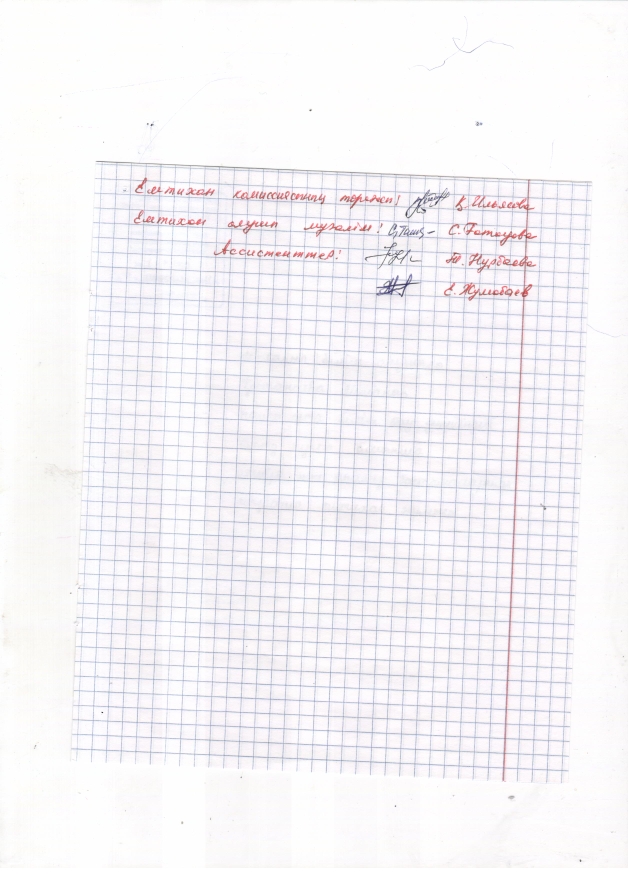 Емтихан комиссиясының төрағасы: Қ. Ильясова
Емтихан алушы мұғалім: С. Татаурова
Ассистенттер: Т. Нурбаева
Е. Жумабаев